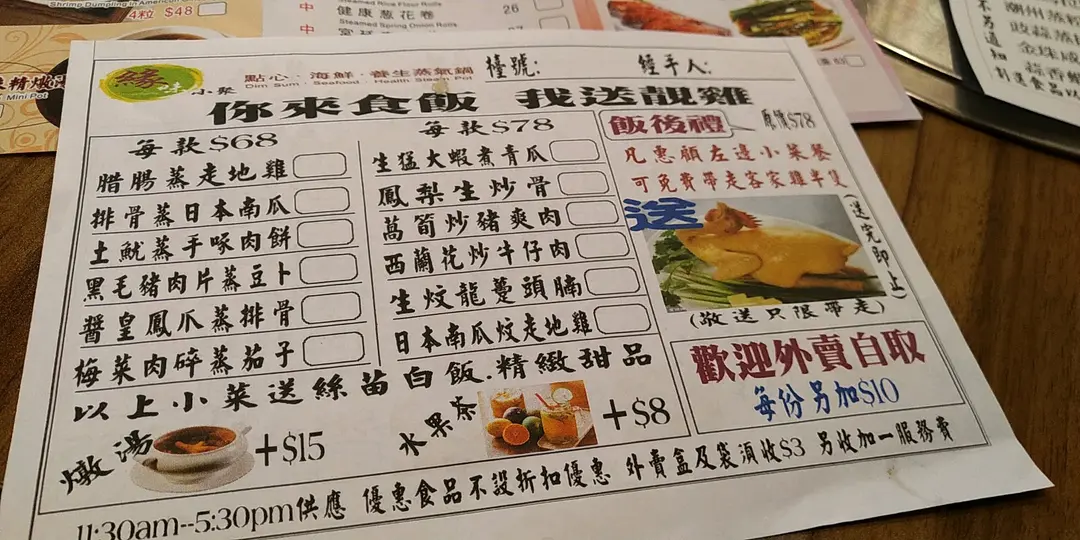 Shrimp Dumpling in American
4粒 $48
中
Steamed Rice Flour Rolls
健康蔥花卷
Steamed Spring Onion Rolls
26
中
27
潮州蒸
豉蒜蒸
金珠
蒜香
不另通知
Mini Pot
緣味小聚
點心·海鮮·養生蒸氣鍋
Dim Sum · Seafood · Health Steam Pot
檯號:
經手人:
你來食飯 我送靚雞
每款$68
腊腸蒸走地雞
排骨蒸日本南瓜
土魷蒸手啄肉餅
黑毛豬肉片蒸豆卜
醬皇鳳爪蒸排骨
梅菜肉碎蒸茄子
每款$78
生猛大蝦煮青瓜
鳳梨生炒骨
萵筍炒豬爽肉
西蘭花炒牛仔肉
生炆龍躉頭腩
日本南瓜炆走地雞
飯後禮
原價$78
凡惠顧左邊小菜餐
可免費帶走客家雞半隻
送
(送完即止)
(敬送只限帶走)
歡迎外賣自取
每份另加$10
以上小菜送絲苗白飯.精緻甜品
燉湯
+$15
水果茶
+$8
11:30am--5:30pm供應 優惠食品不設折扣優惠 外賣盒及袋須收$3 另收加一服務費